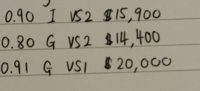 0.90 I VS2 $15,900
0.80 G VS2 $14,400
0.91 G VS1 $20,000